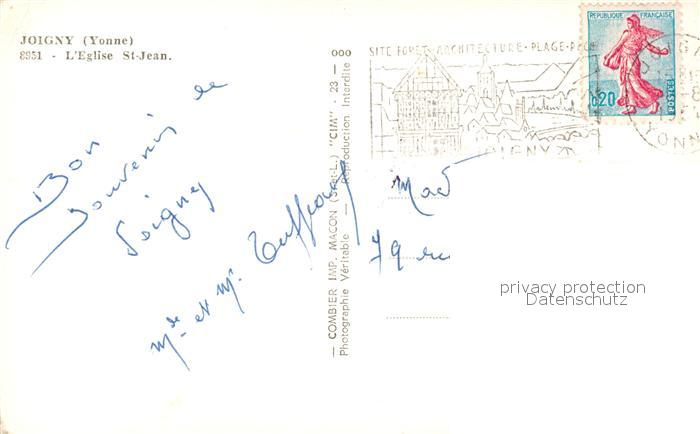 JOIGNY (Yonne)
8951 - L'Eglise St-Jean.
Bon
Souvenir de
Joigny
Mde et Mr.
— COMBIER IMP. MACON (S.-et-L.) "CIM" - 23 — ooo
Photographie Véritable — Reproduction Interdite
SITE FORET - ARCHITECTURE - PLAGE -
JOIGNY
REPUBLIQUE FRANÇAISE
0,20
POSTES
Mad
79
privacy protection
Datenschutz